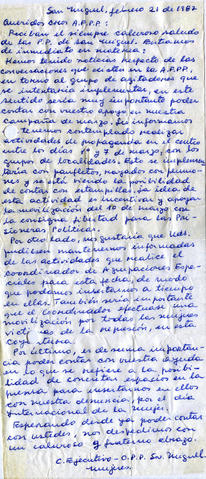 San Miguel, febrero 21 de 1987
Queridos Cros A.P.P.P:
Reciban el siempre caluroso saludo
de las P.P. de San Miguel. Entramos
de inmediato en materia:
Hemos tenido noticias respecto de las
conversaciones que existen en la A.P.P.P,
en torno al grupo de agitadores que
se intentaría implementar, en este
sentido sería muy importante poder
contar con vuestro apoyo en nuestra
Campaña de marzo. Les informamos
tenemos contemplado realizar
actividades de propaganda en el centro
entre los días 1º y 7 de marzo, con los
grupos de localidades. Esto se implemen
taría con panfletos, rayados con plumo-
nes y se está viendo la posibilidad
de contar con estampillas. La idea de
esta actividad es incentivar y apoyar
la movilización del 10 de marzo con
la consigna Libertad para las Pri-
sioneras Políticas.
Por otro lado, nos gustaría que Uds.
pudiesen mantenernos informadas
de las actividades que realice el
coordinador de Agrupaciones Espe-
ciales para esta fecha, de modo
que podamos insertarnos a tiempo
en ellas. También sería importante
que el Coordinador efectuase una
movilización por todas las mujeres
víctimas de la represión, en esta
coyuntura.
Por último, es de suma importan-
cia poder contar con vuestra ayuda
en lo que se refiere a la posibi-
lidad de concretar espacios en la
prensa para insertarnos en ellos
con nuestra denuncia, por el día
Internacional de la Mujer.
Esperando desde ya poder contar
con ustedes, nos despedimos con
un caluroso y fraterno abrazo.
C. Ejecutivo - O.P.P. Sn. Miguel
mujeres.